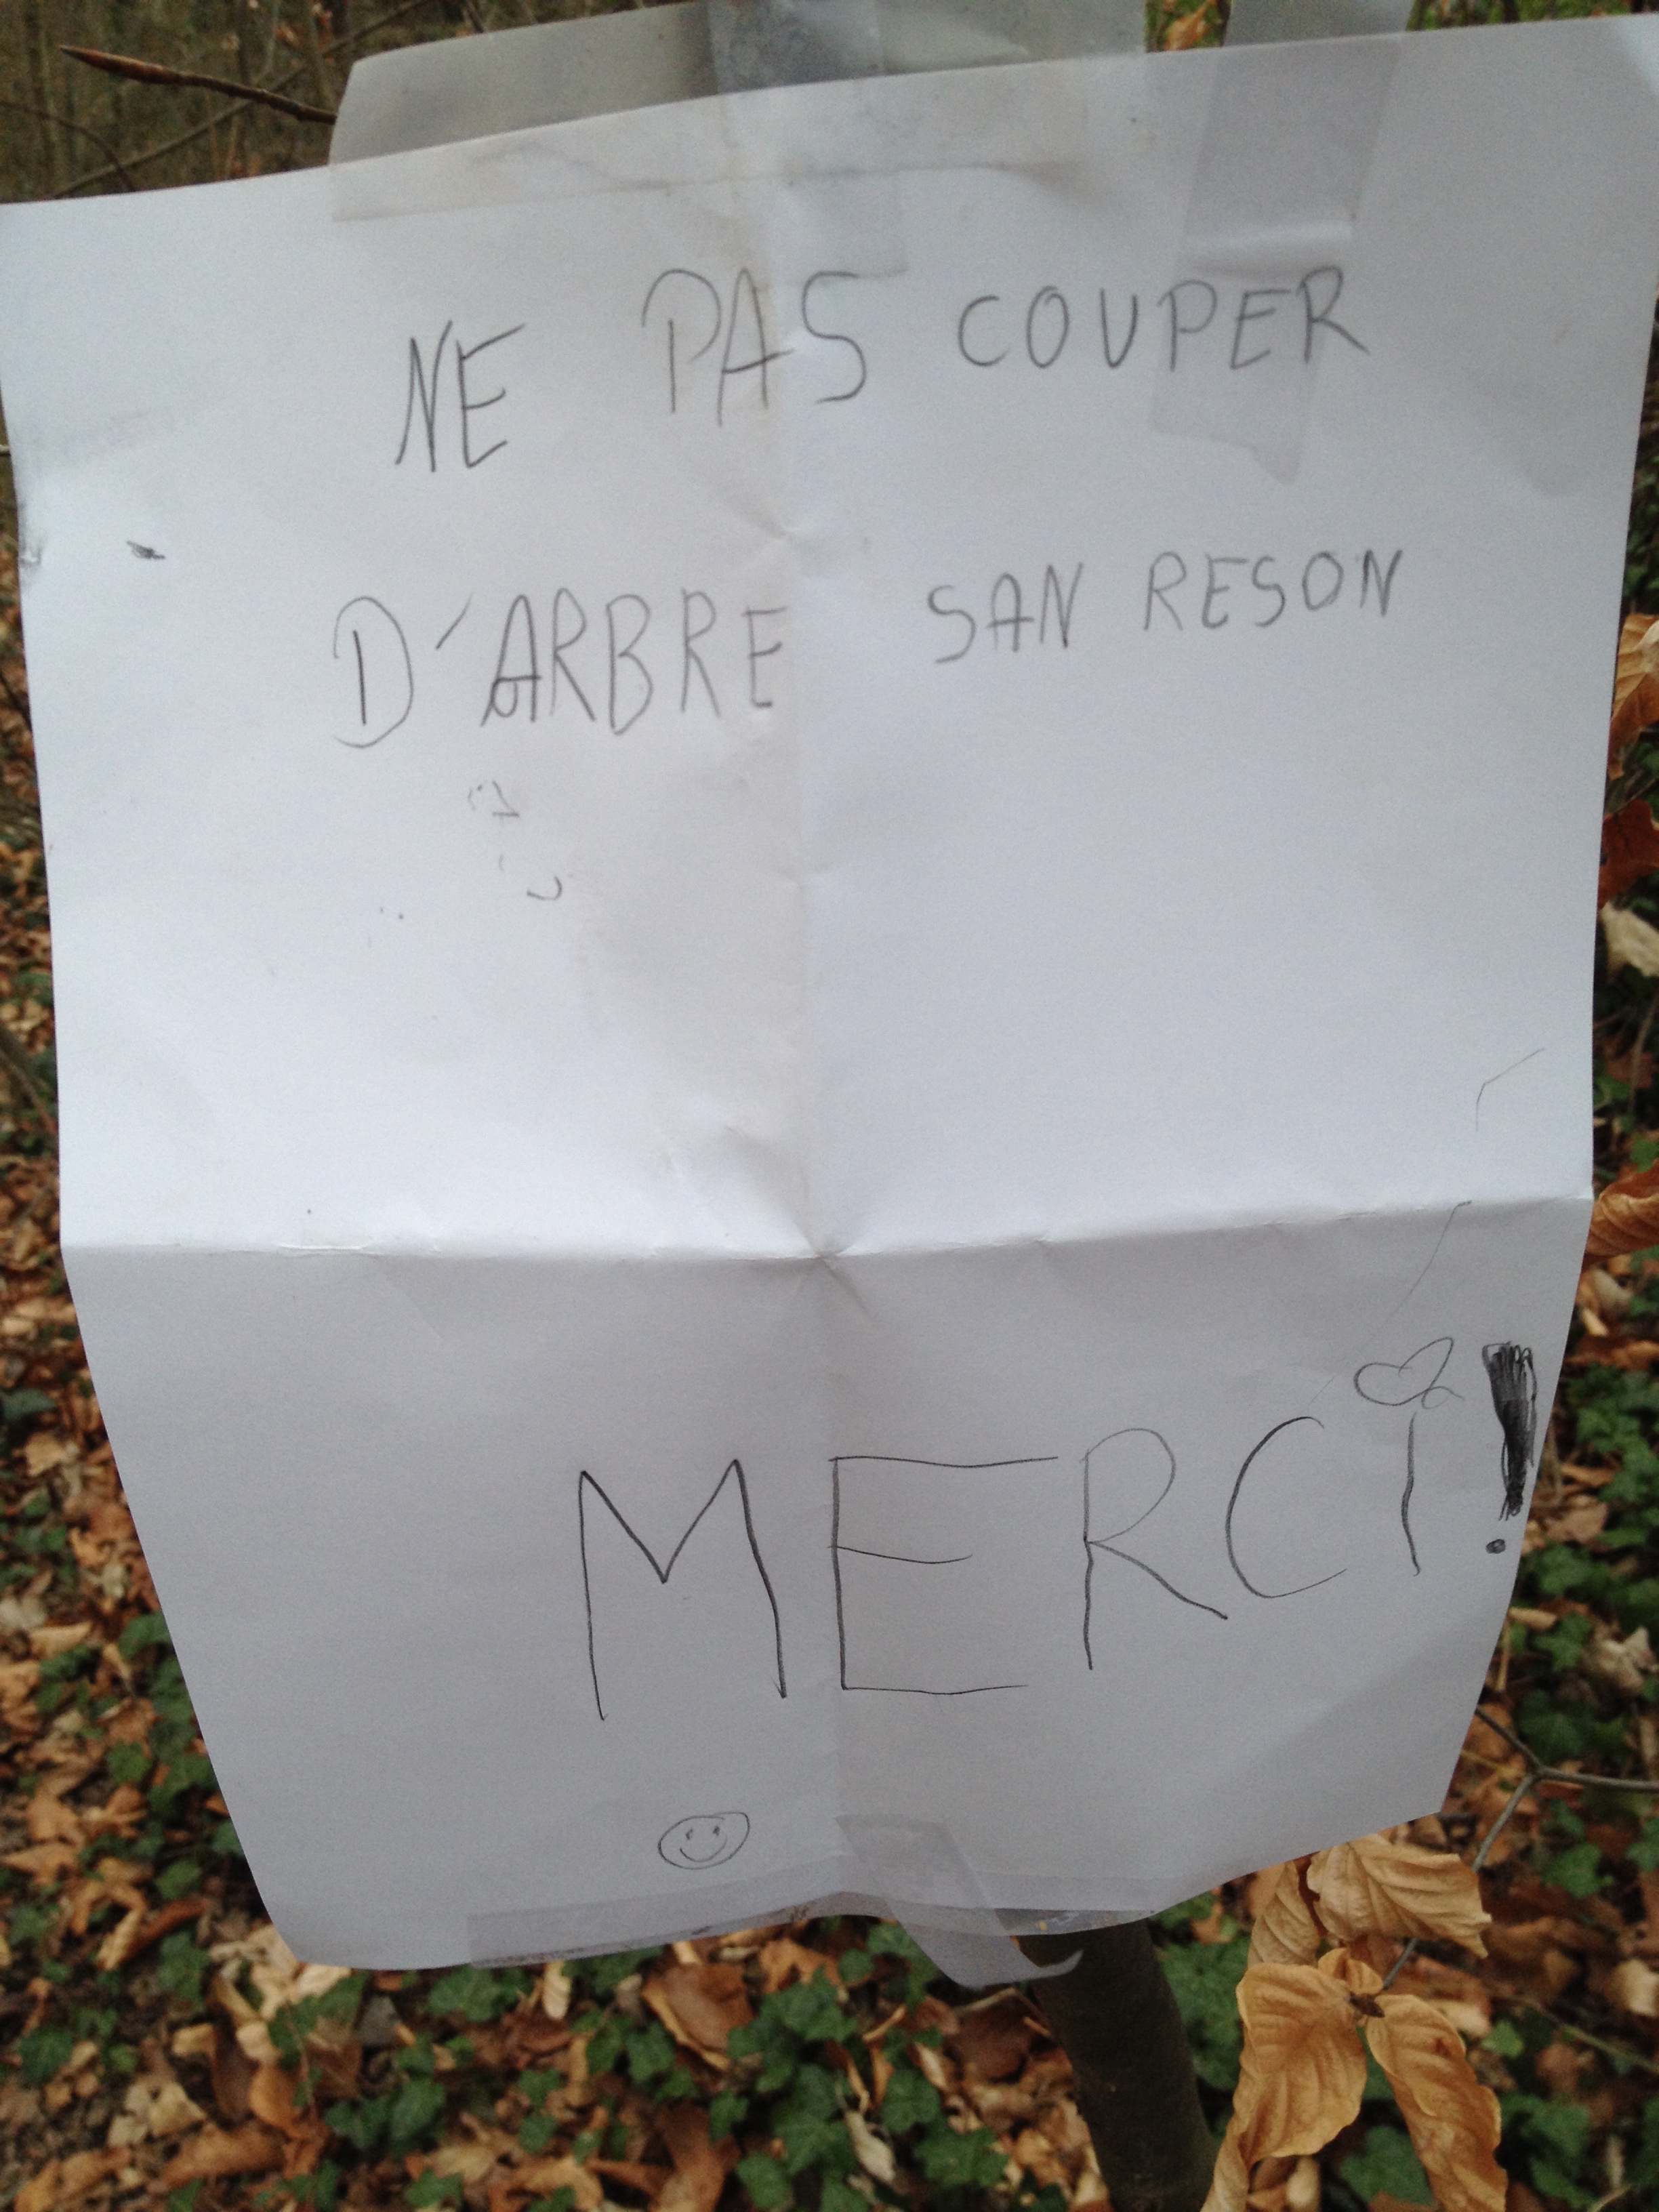 NE PAS COUPER
D'ARBRE SAN RESON
MERCI!